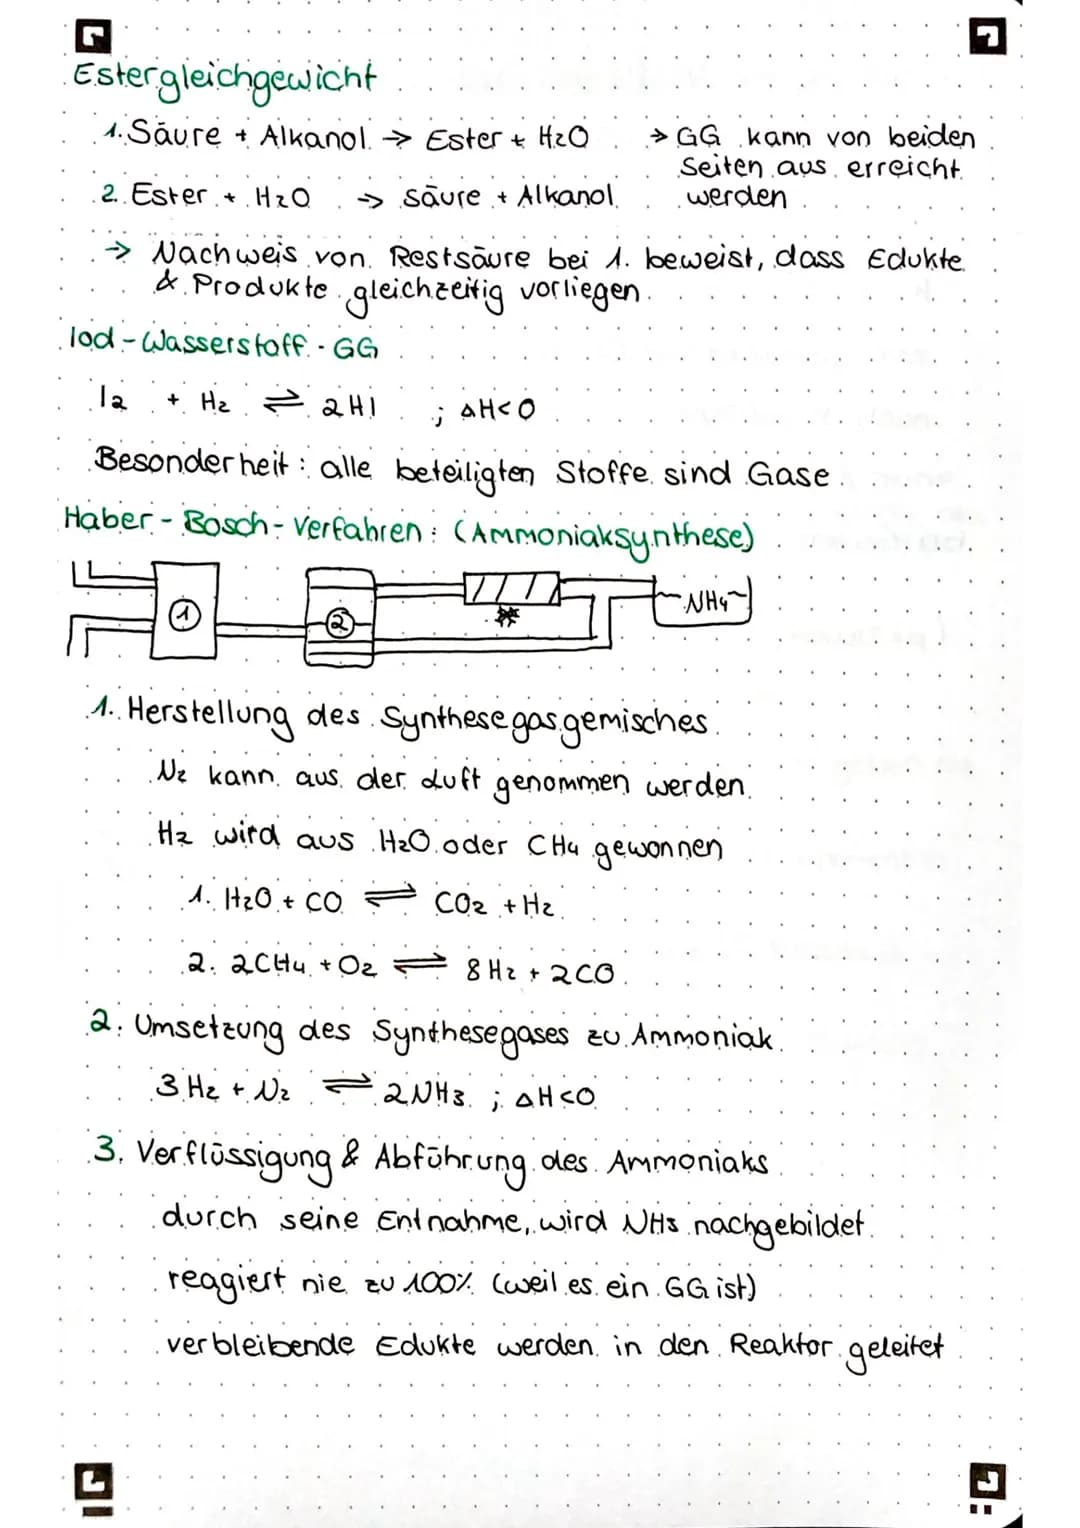 Estergleichgewicht
1. Säure + Alkanol → Ester + H2O → GG kann von beiden
Seiten aus erreicht
2. Ester + H2O → Säure + Alkanol werden
→ Nachweis von Restsäure bei 1. beweist, dass Edukte
& Produkte gleichzeitig vorliegen.
Iod-Wasserstoff-GG
I2 + H2 ⇌ 2HI ; ΔH<0
Besonderheit: alle beteiligten Stoffe sind Gase
Haber-Bosch-Verfahren: (Ammoniaksynthese)
1 2 NH4
1. Herstellung des Synthesegasgemisches
N2 kann aus der Luft genommen werden
H2 wird aus H2O oder CH4 gewonnen
1. H2O + CO ⇌ CO2 + H2
2. 2CH4 + O2 ⇌ 8H2 + 2CO
2. Umsetzung des Synthesegases zu Ammoniak
3H2 + N2 ⇌ 2NH3 ; ΔH<0
3. Verflüssigung & Abführung des Ammoniaks
durch seine Entnahme, wird NH3 nachgebildet
reagiert nie zu 100% (weil es ein GG ist)
verbleibende Edukte werden in den Reaktor geleitet